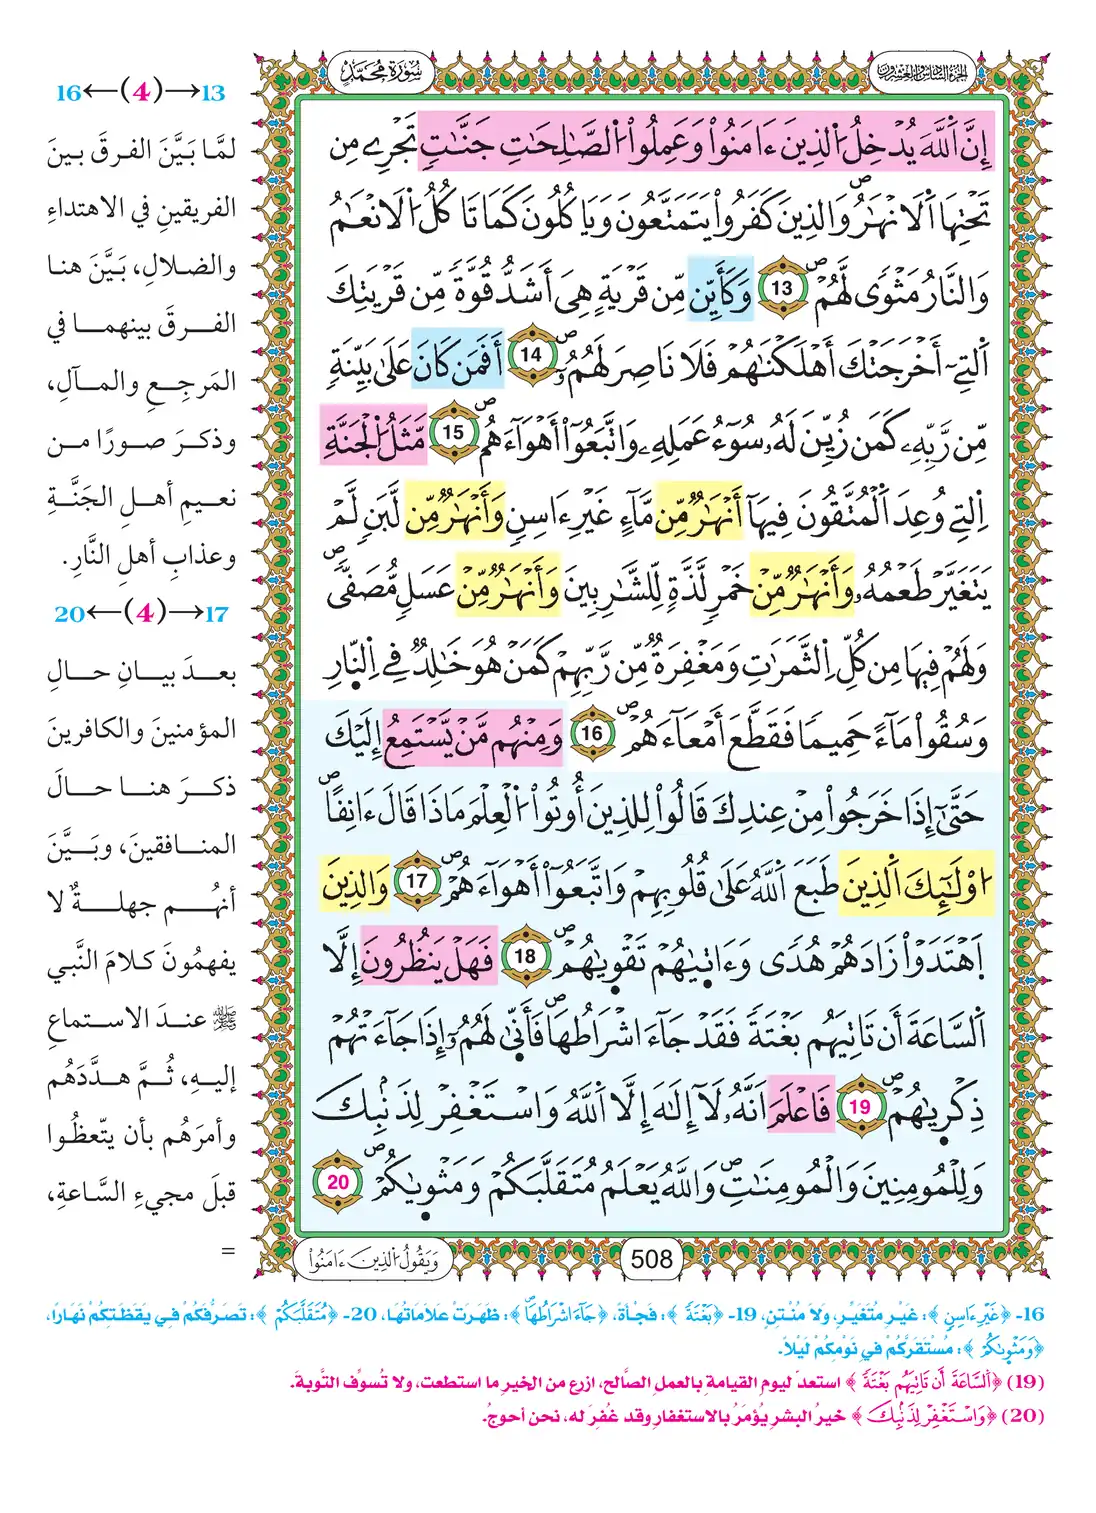 الجزء السادس والعشرون
سورة محمد
إِنَّ اَللَّهَ يُدْخِلُ اُلذِينَ ءَامَنُواْ وَعَمِلُواْ اُلصَّٰلِحَٰتِ جَنَّٰتٖ تَجْرِے مِن
تَحْتِهَا اَلَانْهَٰرُۖ وَالذِينَ كَفَرُواْ يَتَمَتَّعُونَ وَيَاكُلُونَ كَمَا تَاكُلُ اُلَانْعَٰمُ
وَالنَّارُ مَثْوٗى لَّهُمْۖ 13 وَكَأَيِّن مِّن قَرْيَةٍ هِىَ أَشَدُّ قُوَّةٗ مِّن قَرْيَتِكَ
اَلتِےٓ أَخْرَجَتْكَ أَهْلَكْنَٰهُمْ فَلَا نَاصِرَ لَهُمُۥٓۖ 14 أَفَمَن كَانَ عَلَىٰ بَيِّنَةٖ
مِّن رَّبِّهِۦ كَمَن زُيِّنَ لَهُۥ سُوٓءُ عَمَلِهِۦ وَاتَّبَعُوٓاْ أَهْوَآءَهُمۖ 15 مَّثَلُ اُلْجَنَّةِ
اِلتِے وُعِدَ اَلْمُتَّقُونَ فِيهَآ أَنْهَٰرٞ مِّن مَّآءٍ غَيْرِ ءَاسِنٖ وَأَنْهَٰرٞ مِّن لَّبَنٖ لَّمْ
يَتَغَيَّرْ طَعْمُهُۥ وَأَنْهَٰرٞ مِّنْ خَمْرٖ لَّذَّةٖ لِّلشَّٰرِبِينَ وَأَنْهَٰرٞ مِّنْ عَسَلٖ مُّصَفّٗىۖ
وَلَهُمْ فِيهَا مِن كُلِّ اِلثَّمَرَٰتِ وَمَغْفِرَةٞ مِّن رَّبِّهِمْ كَمَنْ هُوَ خَٰلِدٞ فِے اِلنّ۪ارِ
وَسُقُواْ مَآءً حَمِيمٗا فَقَطَّعَ أَمْعَآءَهُمْۖ 16 وَمِنْهُم مَّنْ يَّسْتَمِعُ إِلَيْكَ
حَتَّىٰٓ إِذَا خَرَجُواْ مِنْ عِندِكَ قَالُواْ لِلذِينَ أُوتُواْ اُلْعِلْمَ مَاذَا قَالَ ءَانِفاًۖ
اُوْلَٰٓئِكَ اَلذِينَ طَبَعَ اَللَّهُ عَلَىٰ قُلُوبِهِمْ وَاتَّبَعُوٓاْ أَهْوَآءَهُمْۖ 17 وَالذِينَ
اَهْتَدَوْاْ زَادَهُمْ هُدٗى وَءَات۪يٰهُمْ تَقْو۪يٰهُمْۖ 18 فَهَلْ يَنظُرُونَ إِلَّا
اَلسَّاعَةَ أَن تَاتِيَهُم بَغْتَةٗ فَقَدْ جَآءَ اشْرَاطُهَاۖ فَأَنّ۪ىٰ لَهُمُۥٓ إِذَا جَآءَتْهُمْ
ذِكْر۪يٰهُمْۖ 19 فَاعْلَمَ اَنَّهُۥ لَآ إِلَٰهَ إِلَّا اَللَّهُ وَاسْتَغْفِرْ لِذَنۢبِكَ
وَلِلْمُومِنِينَ وَالْمُومِنَٰتِۖ وَاللَّهُ يَعْلَمُ مُتَقَلَّبَكُمْ وَمَثْو۪يٰكُمْۖ 20
508
وَيَقُولُ اُلذِينَ ءَامَنُواْ
13→(4)←16
لمَّا بَيَّنَ الفرقَ بينَ
الفريقينِ في الاهتداءِ
والضلالِ، بَيَّنَ هنا
الفرقَ بينهما في
المَرجِعِ والمآلِ،
وذكرَ صورًا من
نعيمِ أهلِ الجَنَّةِ
وعذابِ أهلِ النَّارِ.
17→(4)←20
بعدَ بيانِ حالِ
المؤمنينَ والكافرينَ
ذكرَ هنا حالَ
المنافقينَ، وبَيَّنَ
أنهُم جهلةٌ لا
يفهمُونَ كلامَ النَّبي
ﷺ عندَ الاستماعِ
إليهِ، ثُمَّ هدَّدَهُم
وأمرَهُم بأن يتّعظُوا
قبلَ مجيءِ السَّاعةِ،
=
16- ﴿غَيْرِ ءَاسِنٖ﴾: غَيْرِ مُتَغَيِّرٍ، وَلاَ مُنْتِنٍ، 19- ﴿بَغْتَةٗ﴾: فَجْأَةً، ﴿جَآءَ اشْرَاطُهَاۖ﴾: ظَهَرَتْ عَلاَمَاتُهَا، 20- ﴿مُتَقَلَّبَكُمْ﴾: تَصَرُّفَكُمْ فِي يَقَظَتِكُمْ نَهَارًا،
﴿وَمَثْو۪يٰكُمْ﴾: مُسْتَقَرَّكُمْ فِي نَوْمِكُمْ لَيْلاً.
(19) ﴿اَلسَّاعَةَ أَن تَاتِيَهُم بَغْتَةٗ﴾ استعدّ ليومِ القيامةِ بالعملِ الصَّالحِ، ازرع من الخيرِ ما استطعت، ولا تُسوِّف التَّوبةَ.
(20) ﴿وَاسْتَغْفِرْ لِذَنۢبِكَ﴾ خيرُ البشرِ يُؤمَرُ بالاستغفارِ وقد غُفرَ له، نحن أحوجُ.